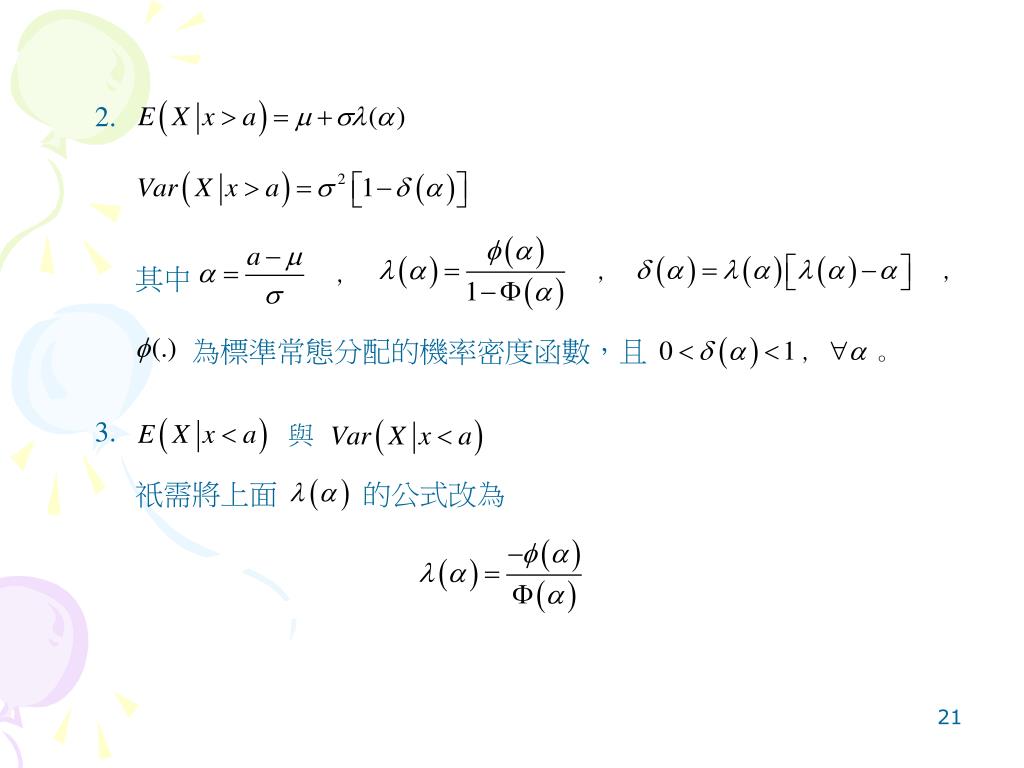 2. E(X|x>a)=μ+σλ(α)
Var(X|x>a)=σ²[1−δ(α)]
其中 α=(a−μ)/σ , λ(α)=ϕ(α)/(1−Φ(α)) , δ(α)=λ(α)[λ(α)−α] ,
ϕ(.) 為標準常態分配的機率密度函數，且 0<δ(α)<1 , ∀α 。
3. E(X|x<a) 與 Var(X|x<a)
祇需將上面 λ(α) 的公式改為
λ(α)=−ϕ(α)/Φ(α)
21